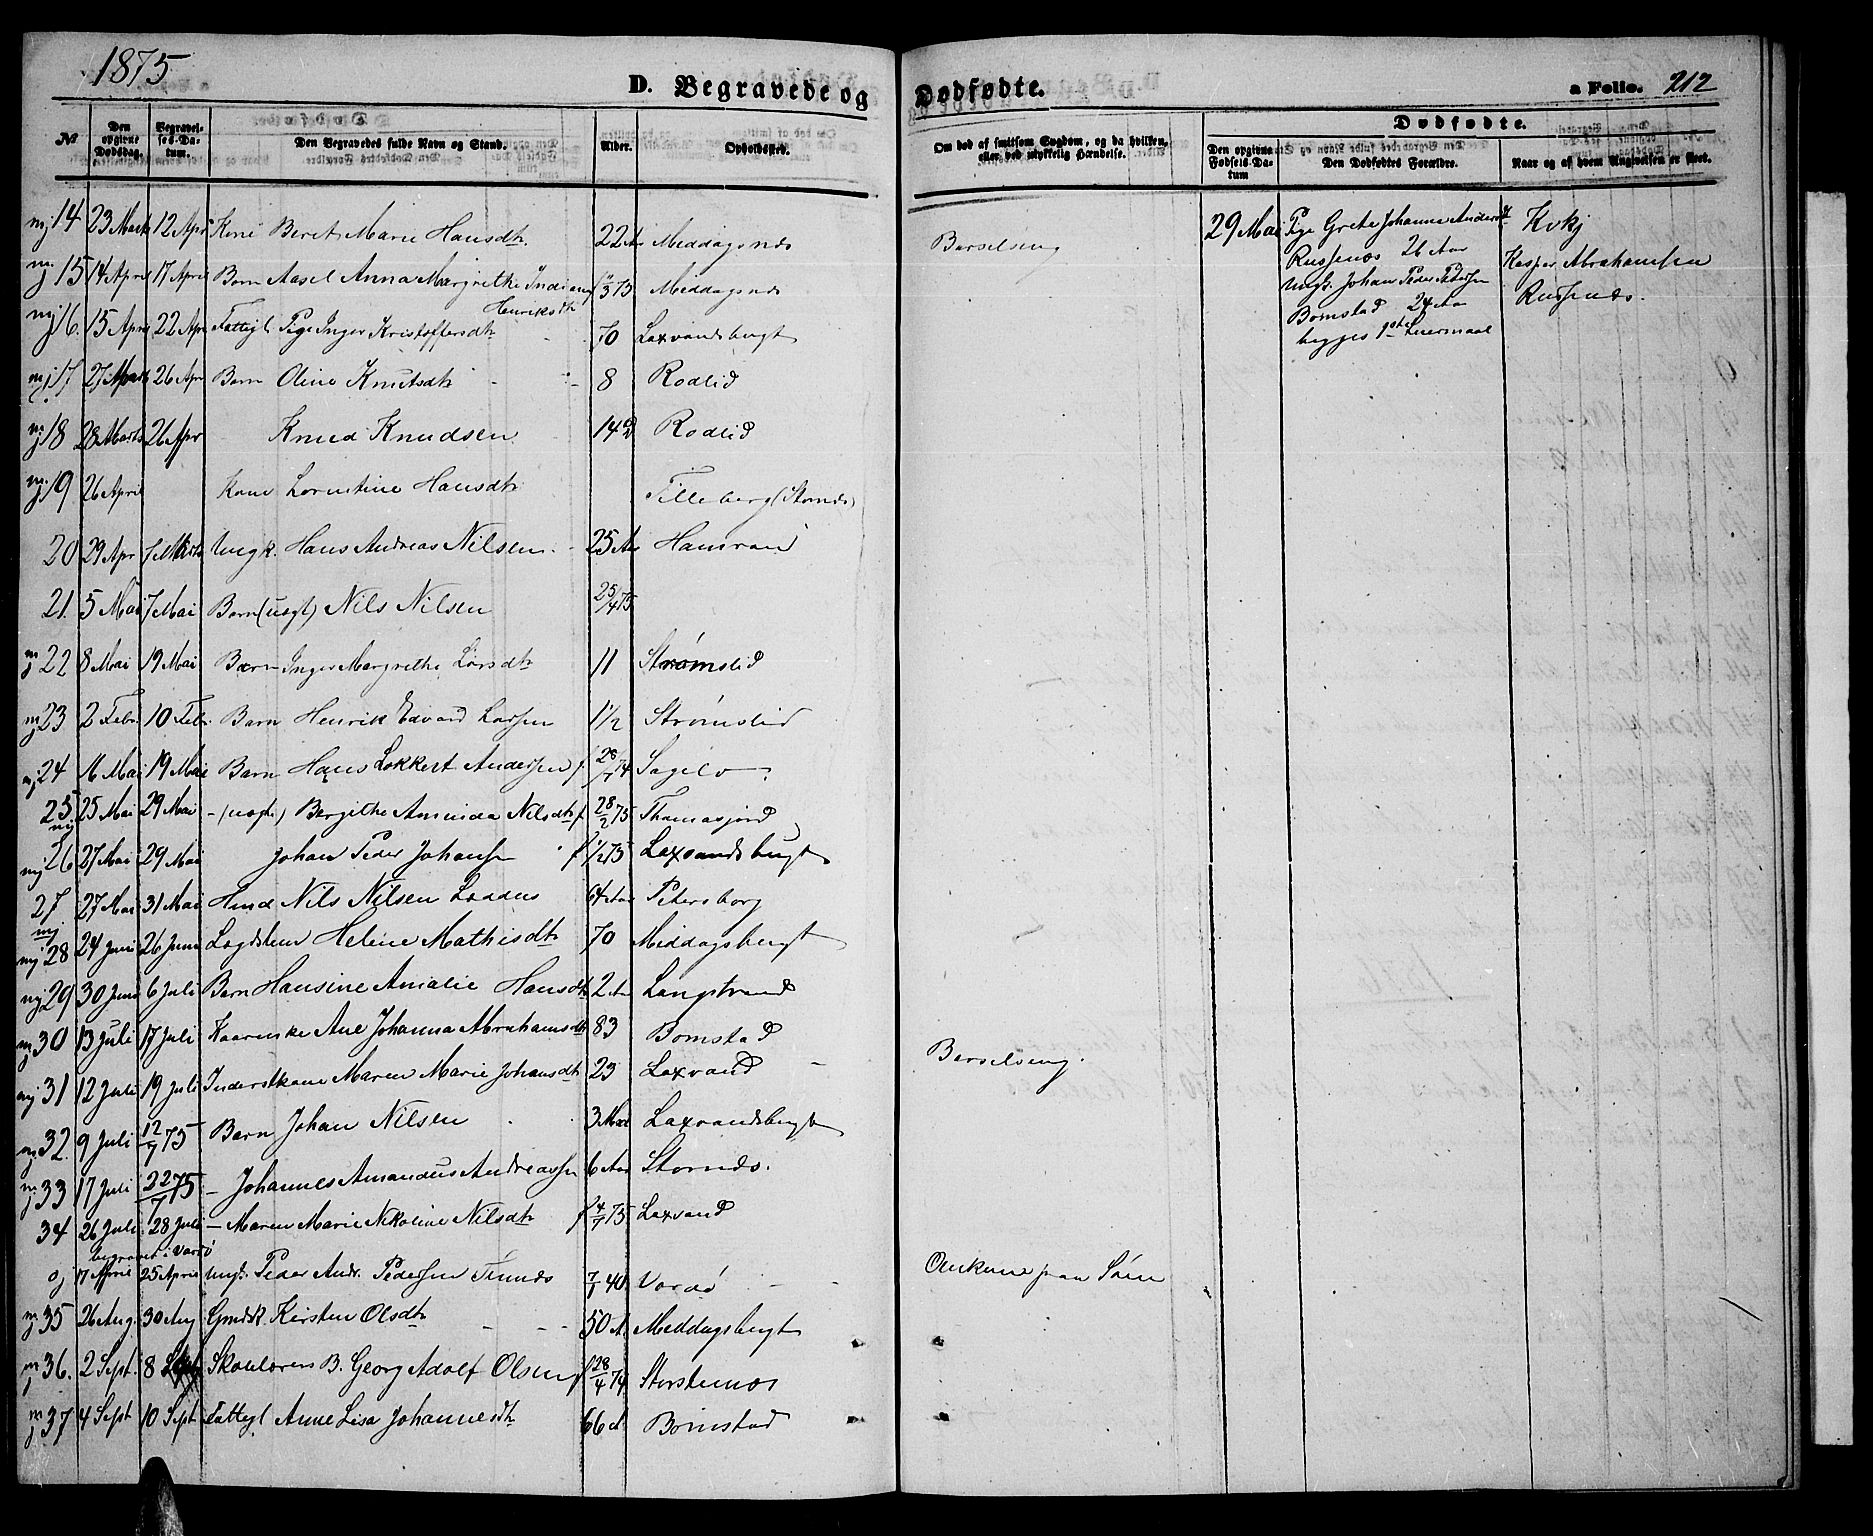 1875
D. Begravede og Dødfødte.
a Folio. 212
№ Den opgivne Dødsdag. Begravelses-Datum. Den Begravedes fulde Navn og Stand. Alder. Opholdssted. Om død af smitsom Sygdom, og da hvilken, eller ved ulykkelig Hændelse. Dødfødte.
Den opgivne Fødsels-Datum Den Dødfødtes Forældre. Naar og af hvem Angivelsen er skeet.
14 23 Marts 12 Apr Kone Beret Marie Hansdtr 22 Aar Meddagsnæs Barselseng 29 Mai Pige Grete Johanne Andersd
Russenæs 26 Aar
Ungk. Johan Peder Pedersen
Bomstad 24 Aar
begges 1ste Leiermaal
Kasper Abrahamsen
Russenæs.
15 14 April 17 April Barn Aasel Anna Margrethe Henriksdtr 75 Meddagsnæs
16. 15 April 22 Apr Fattigl Pige Inger Kristoffersdtr 70 Laxvandsbugt
17 27 Marts 26 Apr Barn Oline Knutsdtr 8 Rodlid
18 28 Marts 26 Apr Knud Knudsen 14 D Rodlid
19 26 April Kone Lorentine Hansdtr Tilleberg (Stornæs)
20 29 Apr 7 Ungk. Hans Andreas Nilsen 25 Aar Hamvand
21. 5 Mai 7 Mai Barn (uægt) Nils Nilsen 25/4 75
22 8 Mai 19 Mai Barn Inger Margrethe Larsdtr 11 Strømslid
23 2 Febr. 10 Febr. Barn Henrik Edvard Larssen 1 1/2 Strømslid
24 16 Mai 19 Mai Barn Hans Lokkert Anderssen f 74 Sagelv
25 25 Mai 29 Mai - (uægte) Bergithe Aminda Nilsdtr f 28/2 75 Thomasjord
26 27 Mai 29 Mai Johan Peder Johansen f 1/2 75 Laxvandsbugt
27 27 Mai 31 Mai Nils Nilsen 64 Aar Petersborg
28 24 Juni 26 Juni Lægdslem Helene Mathisdtr 70 Meddagsbugt
29 30 Juni 6 Juli Barn Hansine Amalie Hansdtr 2 Aar Langstrand
30 13 Juli 17 Juli Kaarenke Ane Johanna Abrahamsdtr 83 Bomstad
31 12 Juli 19 Juli Inderstkone Maren Marie Johansdtr 23 Laxvand Barselseng.
32. 9 Juli 12/7 75 Barn Johan Nilsen 3 Laxvandsbugt
33 17 Juli 22/7 75 - Johannes Amandus Andreassen 6 Aar Stornæs.
34 26 Juli 28 Juli - Maren Marie Nikoline Nilsdtr f 4/7 75 Laxvand
begravet i Vardø
7 April 25 April Ungk. Peder Andr. Pedersen 7/1 40 Vardø Omkomne paa Søen
35 26 Aug. 30 Aug Gmdsk. Kirsten Olsdtr 50 A. Meddagsbugt
36. 2 Sept. 8 Sept Skolelærers B. Georg Adolf Olsen f 28/4 74 Storstennæs
37 4 Sept 10 Sept Fattigl Anne Lisa Johannesdtr 66 A Bomstad